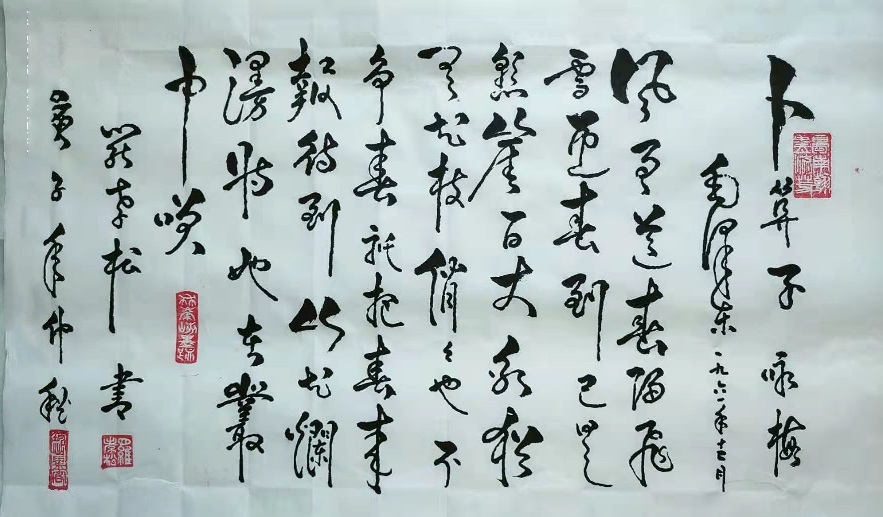 卜算子 咏梅
毛泽东 一九六一年十二月
风雨送春归飛
雪迎春到已是
悬崖百丈冰犹
有花枝俏々也不
争春祇把春来
報待到山花爛
漫時她在叢
中咲
罗孝松 書
庚子年仲秋